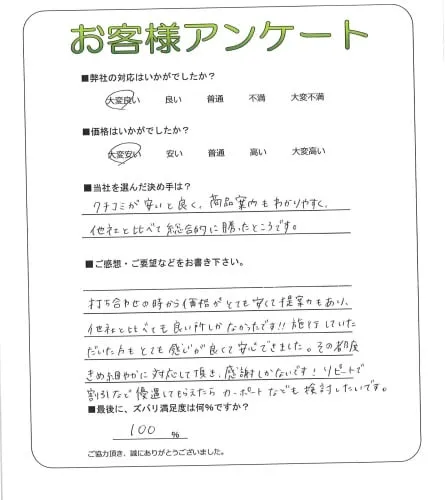 お客様アンケート
■弊社の対応はいかがでしたか?
大変良い 良い 普通 不満 大変不満
■価格はいかがでしたか?
大変安い 安い 普通 高い 大変高い
■当社を選んだ決め手は?
クチコミが安いと良く、商品案内もわかりやすく、
他社と比べて総合的に勝ったところです。
■ご感想・ご要望などをお書き下さい。
打ち合わせの時から価格がとても安くて提案力もあり、
他社と比べても良い所しかなかったです!!施行していた
だいた方もとても感じが良くて安心できました。その都度
きめ細やかに対応して頂き、感謝しかないです!リピートで
割引など優遇してもらえたらカーポートなども検討したいです。
■最後に、ズバリ満足度は何%ですか?
100 %
ご協力頂き、誠にありがとうございました。